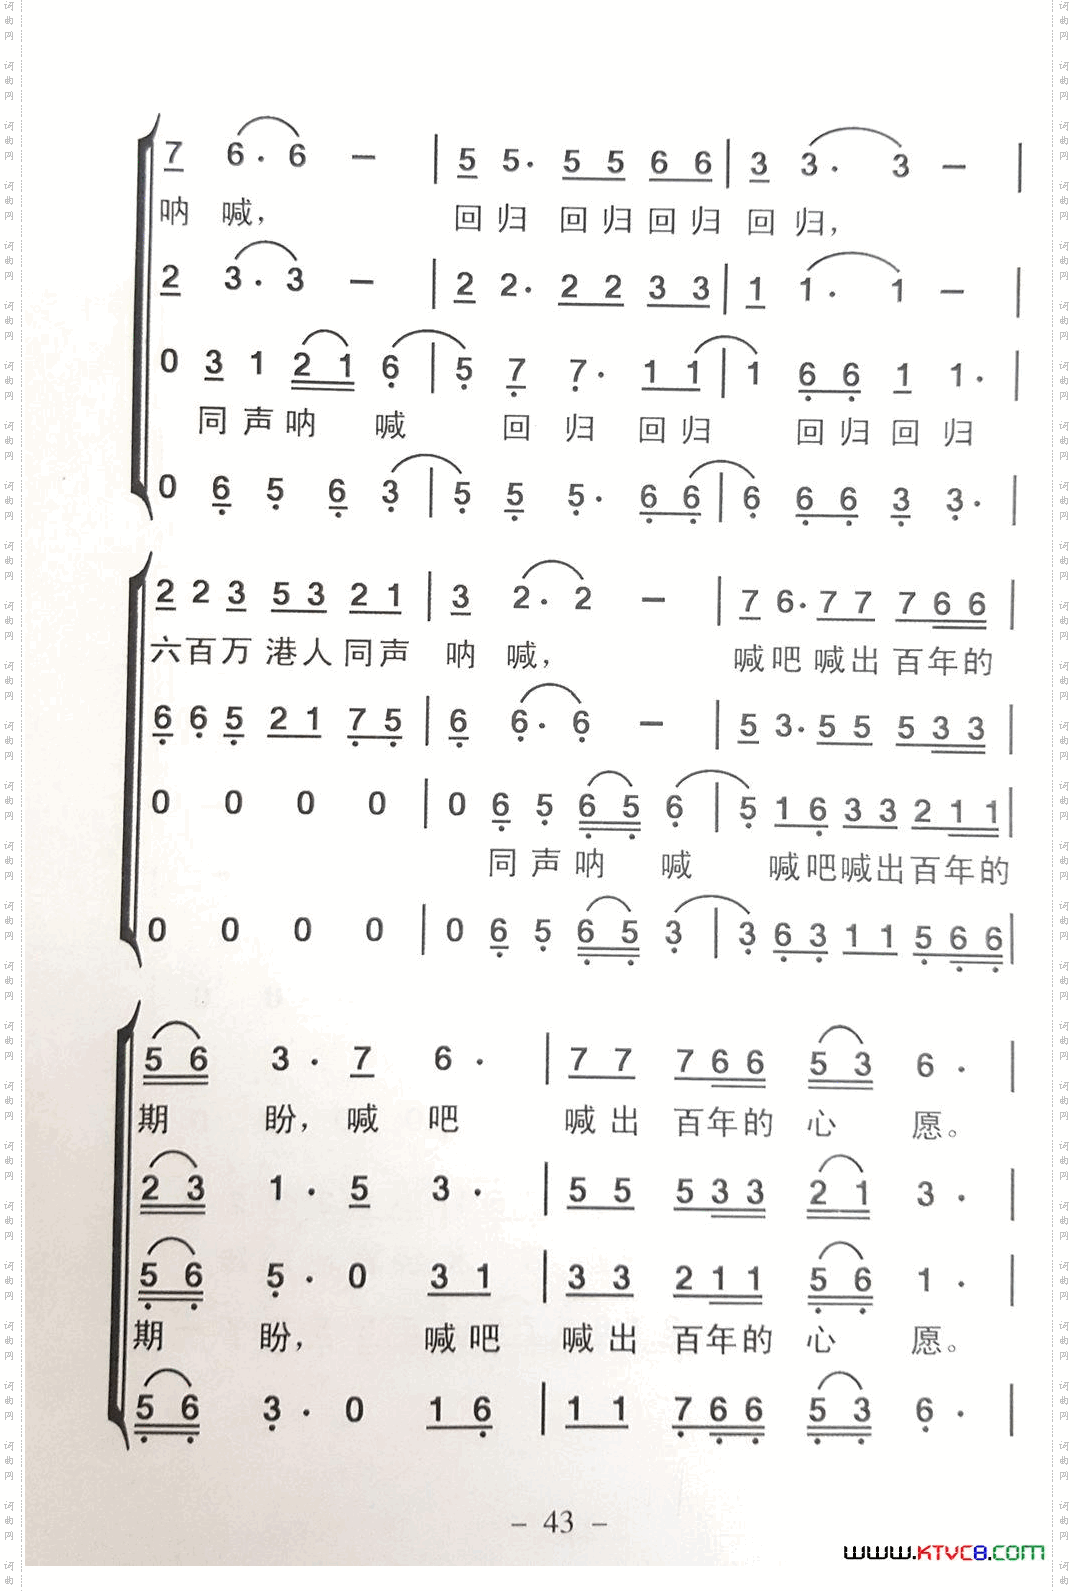 7 6· 6 － | 5 5· 5 5 6 6 | 3 3· 3 － |
呐 喊， 回 归 回 归 回 归 回 归，
2 3· 3 － | 2 2· 2 2 3 3 | 1 1· 1 － |
0 3 1 2 1 6 | 5 7 7· 1 1 | 1 6 6 1 1· |
同 声 呐 喊 回 归 回 归 回 归 回 归
0 6 5 6 3 | 5 5 5· 6 6 | 6 6 6 3 3· |
2 2 3 5 3 2 1 | 3 2· 2 － | 7 6· 7 7 7 6 6 |
六 百 万 港 人 同 声 呐 喊， 喊 吧 喊 出 百 年 的
6 6 5 2 1 7 5 | 6 6· 6 － | 5 3· 5 5 5 3 3 |
0 0 0 0 | 0 6 5 6 5 6 | 5 1 6 3 3 2 1 1 |
同 声 呐 喊 喊 吧 喊 出 百 年 的
0 0 0 0 | 0 6 5 6 5 3 | 3 6 3 1 1 5 6 6 |
5 6 3· 7 6· | 7 7 7 6 6 5 3 6· |
期 盼， 喊 吧 喊 出 百 年 的 心 愿。
2 3 1· 5 3· | 5 5 5 3 3 2 1 3· |
5 6 5· 0 3 1 | 3 3 2 1 1 5 6 1· |
期 盼， 喊 吧 喊 出 百 年 的 心 愿。
5 6 3· 0 1 6 | 1 1 7 6 6 5 3 6· |
– 43 –
www.KTVC8.COM